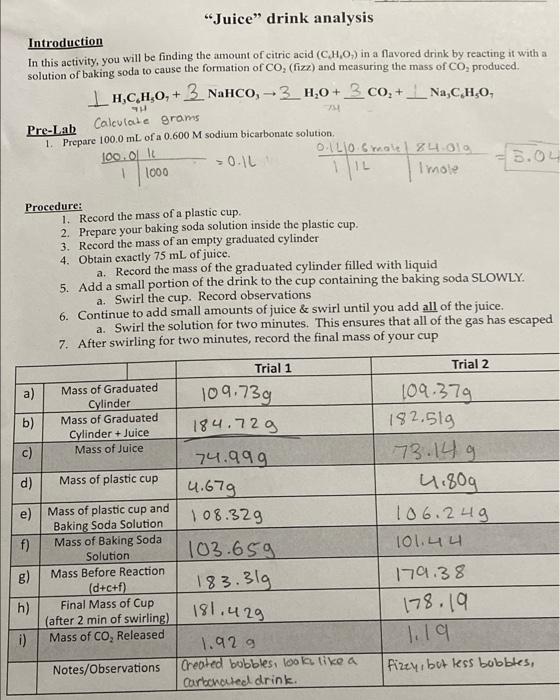 “Juice” drink analysis
Introduction
In this activity, you will be finding the amount of citric acid (C₆H₈O₇) in a flavored drink by reacting it with a
solution of baking soda to cause the formation of CO₂ (fizz) and measuring the mass of CO₂ produced.
1 H₃C₆H₅O₇ + 3 NaHCO₃ → 3 H₂O + 3 CO₂ + 1 Na₃C₆H₅O₇
Pre-Lab Calculate grams
1. Prepare 100.0 mL of a 0.600 M sodium bicarbonate solution.
100.0 1L = 0.1L 0.1L 0.6mole 84.01g = 5.04
1 1000 1 1L 1mole
Procedure:
1. Record the mass of a plastic cup.
2. Prepare your baking soda solution inside the plastic cup.
3. Record the mass of an empty graduated cylinder
4. Obtain exactly 75 mL of juice.
a. Record the mass of the graduated cylinder filled with liquid
5. Add a small portion of the drink to the cup containing the baking soda SLOWLY.
a. Swirl the cup. Record observations
6. Continue to add small amounts of juice & swirl until you add all of the juice.
a. Swirl the solution for two minutes. This ensures that all of the gas has escaped
7. After swirling for two minutes, record the final mass of your cup
Trial 1 Trial 2
a) Mass of Graduated Cylinder 109.73g 109.37g
b) Mass of Graduated Cylinder + Juice 184.72g 182.51g
c) Mass of Juice 74.99g 73.14g
d) Mass of plastic cup 4.67g 4.80g
e) Mass of plastic cup and Baking Soda Solution 108.32g 106.24g
f) Mass of Baking Soda Solution 103.65g 101.44
g) Mass Before Reaction (d+c+f) 183.31g 179.38
h) Final Mass of Cup (after 2 min of swirling) 181.42g 178.19
i) Mass of CO₂ Released 1.92g 1.19
Notes/Observations Created bubbles, looks like a carbonated drink. Fizzy, but less bubbles,